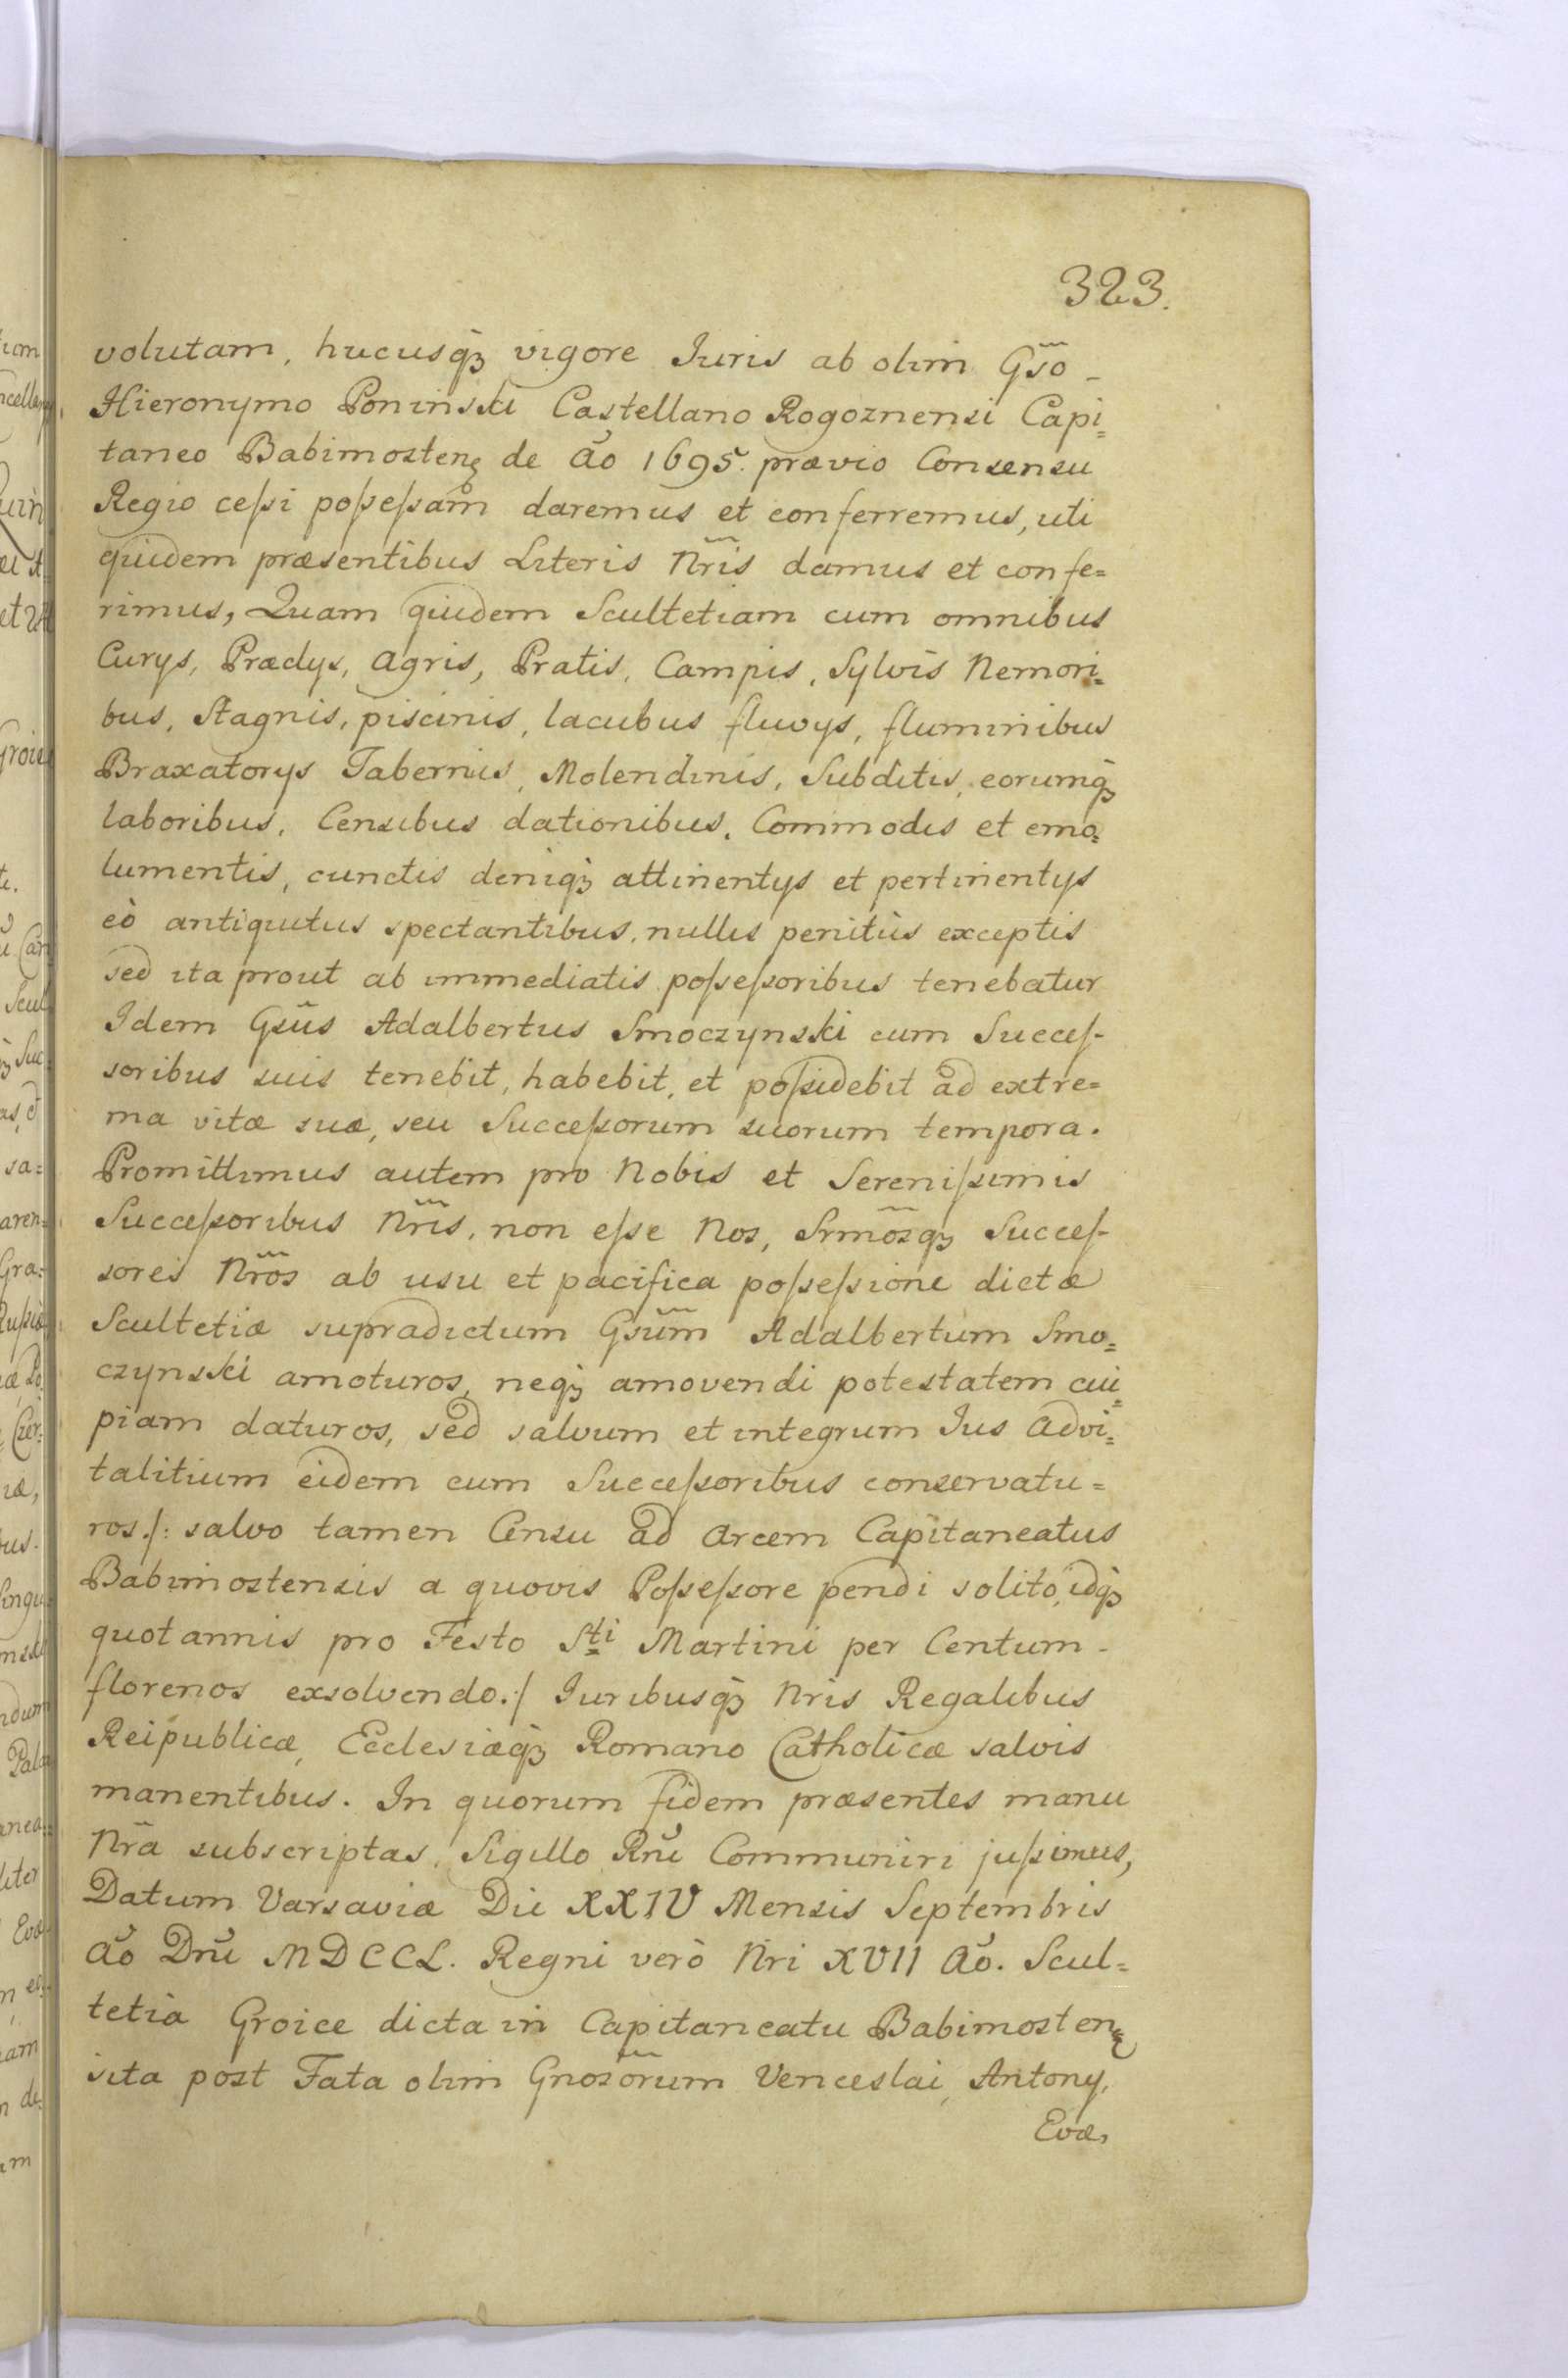 323.
volutam, hucusq3 vigore Iuris ab olim Gs̃o -
Hieronymo Poninski Castellano Rogoznensi Capi=
taneo Babimosten͡ę de Ao͂ 1695. prævio Consensu
Regio ceſsi poſseſsam daremus et conferremus, uti
quidem præsentibus Literis Nr̃is damus et confe=
rimus, Quam quidem Scultetiam cum omnibus
Curys, Prædys, agris, Pratis, Campis, Sylvis Nemori=
bus, Stagnis, piscinis, lacubus fluvys, fluminibus
Braxatorys Tabernis, Molendinis, Subditis, eorumq3
laboribus, Censibus dationibus, Commodis et emo=
lumentis, cunctis deniq3 attinentys et pertinentys
eò antiquitus spectantibus, nullis penitùs exceptis
sed ita prout ab immediatis poſseſsoribus tenebatur
Idem Gsũs Adalbertus Smoczynski cum Succeſ-
soribus suis tenebit, habebit, et poſsidebit ad extre=
ma vitæ suæ, seu Succeſsorum suorum tempora.
Promittimus autem pro Nobis et Sereniſsimis
Succeſsoribus Nr̃is, non eſse Nos, Srmõsq3 Succeſ-
sores Nr̃os ab usu et pacifica poſseſsione dictæ
Scultetiæ supradictum Gsũm Adalbertum Smo=
czynski amoturos, neq3 amovendi potestatem cui=
piam daturos, sed salvum et integrum Ius advi=
talitium eidem cum Succeſsoribus conservatu=
ros /: salvo tamen Censu ad Arcem Capitaneatus
Babimostensis a quovis Poſseſsore pendi solito, idq3
quotannis pro Festo Sti Martini per Centum -
florenos exsolvendo :/ Iuribusq3 Nris Regalibus
Reipublicæ, Ecclesiæq3 Romano Catholicæ salvis
manentibus. In quorum fidem præsentes manu
Nr̃a subscriptas, Sigillo Rñi Communiri juſsimus,
Datum Varsaviæ Die XXIV Mensis Septembris
Ao͂ Dñi MDCCL. Regni verò Nri XVII Ao͂. Scul=
tetia Groice dicta in Capitaneatu Babimostenę
sita post Fata olim Gnosõrum Venceslai, Antony,
Evæ,